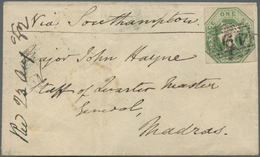 Via Southampton
Major John Hayne
Staff of Quarter Master
General,
Madras.
Rec 23 Aug
ONE